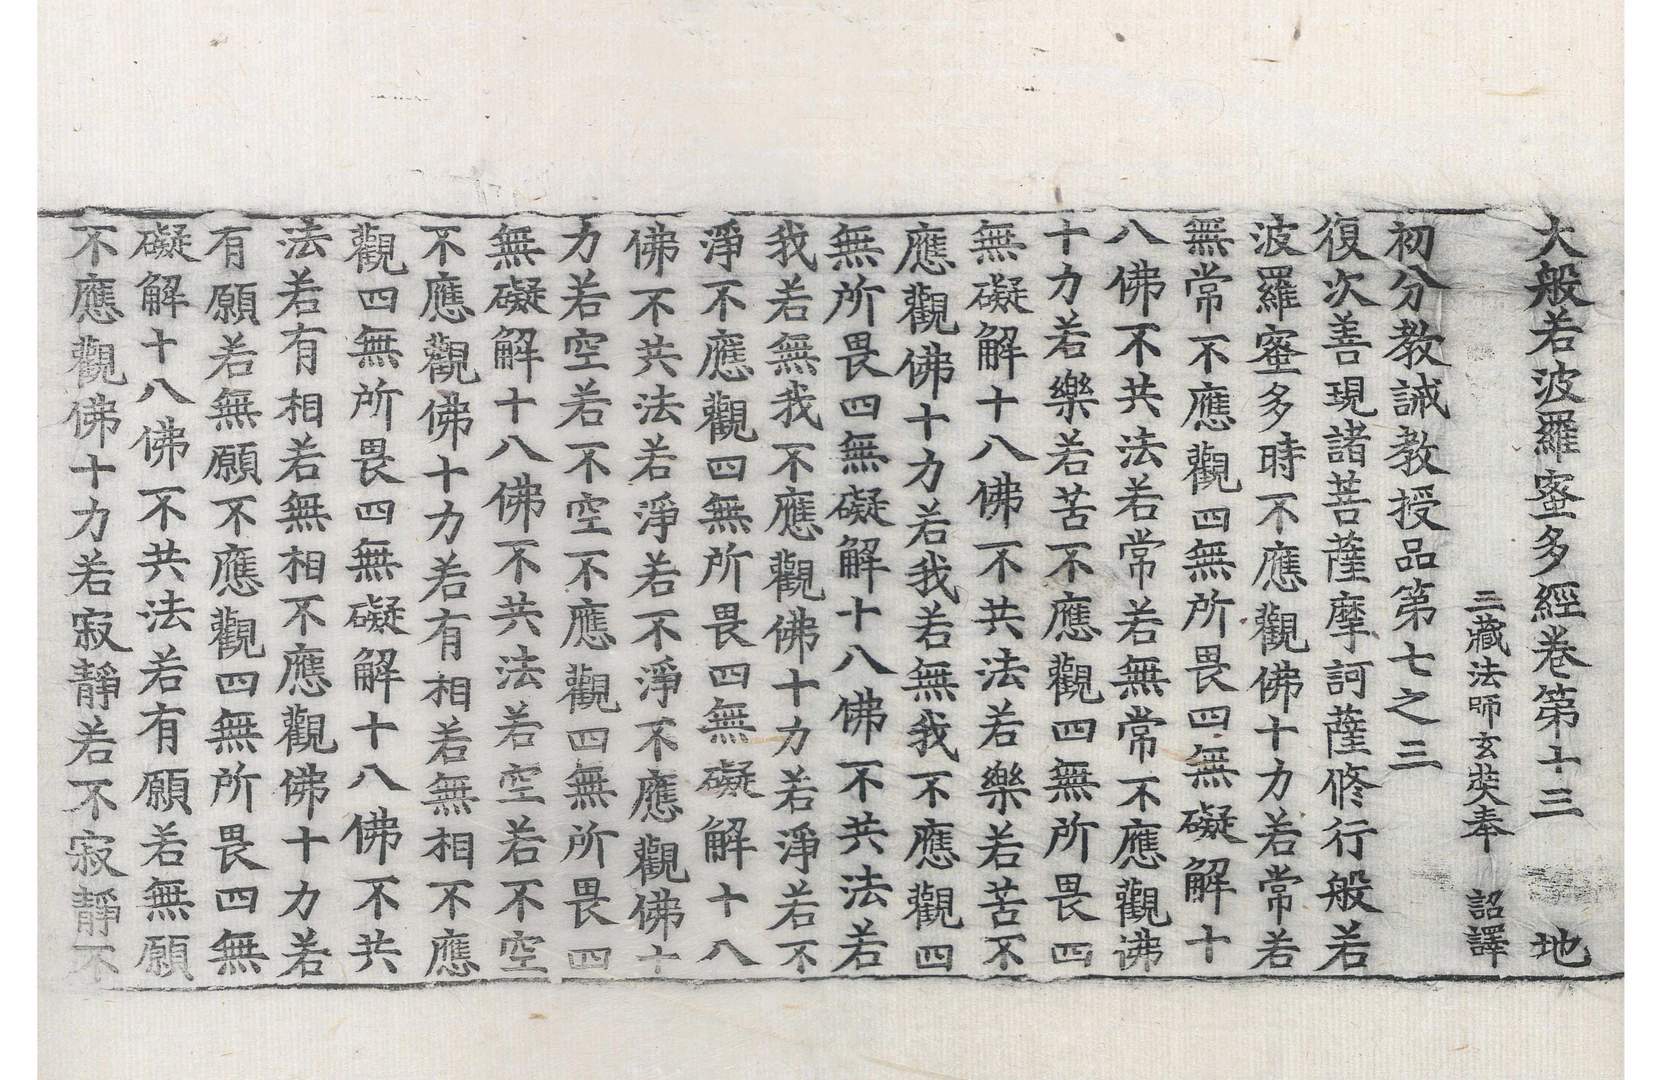 大般若波羅蜜多經卷第十三 地
三藏法師玄奘奉 詔譯
初分教誡教授品第七之三
復次善現諸菩薩摩訶薩修行般若
波羅蜜多時不應觀佛十力若常若
無常不應觀四無所畏四無礙解十
八佛不共法若常若無常不應觀佛
十力若樂若苦不應觀四無所畏四
無礙解十八佛不共法若樂若苦不
應觀佛十力若我若無我不應觀四
無所畏四無礙解十八佛不共法若
我若無我不應觀佛十力若淨若不
淨不應觀四無所畏四無礙解十八
佛不共法若淨若不淨不應觀佛十
力若空若不空不應觀四無所畏四
無礙解十八佛不共法若空若不空
不應觀佛十力若有相若無相不應
觀四無所畏四無礙解十八佛不共
法若有相若無相不應觀佛十力若
有願若無願不應觀四無所畏四無
礙解十八佛不共法若有願若無願
不應觀佛十力若寂靜若不寂靜不